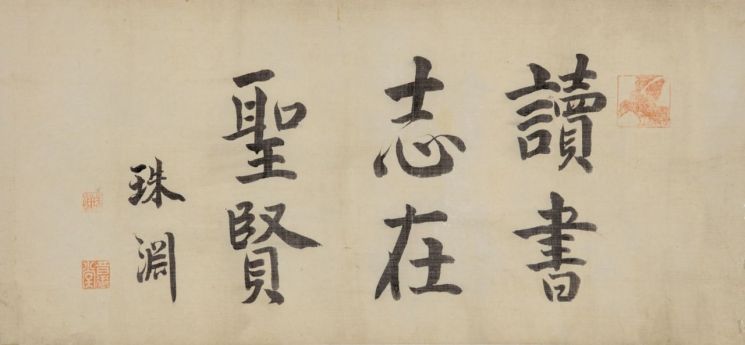 讀書
志在
聖賢
珠淵